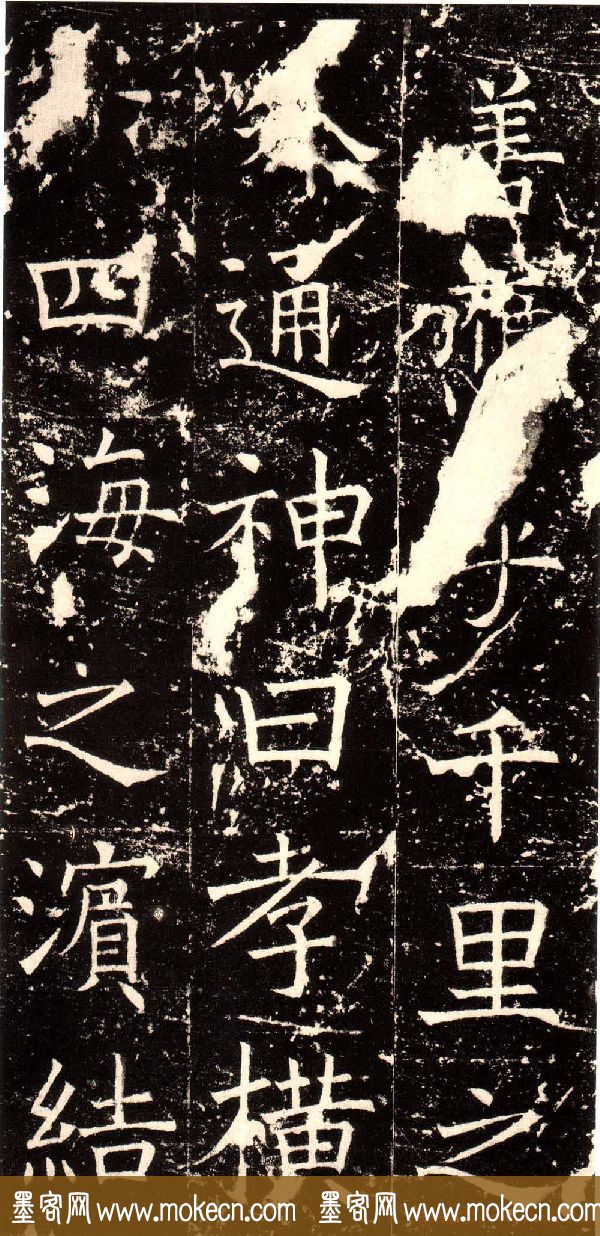 善應乎千里之
通神孝橫
四海之濱結
墨客网 www.mokecn.com 墨客网 www.mokecn.com